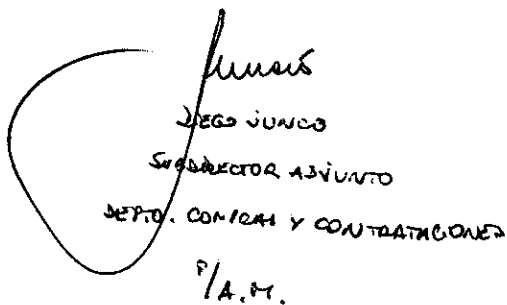 DIEGO JUNCO
SUBDIRECTOR ADJUNTO
DEPTO. COMPRAS Y CONTRATACIONES
P/A.M.